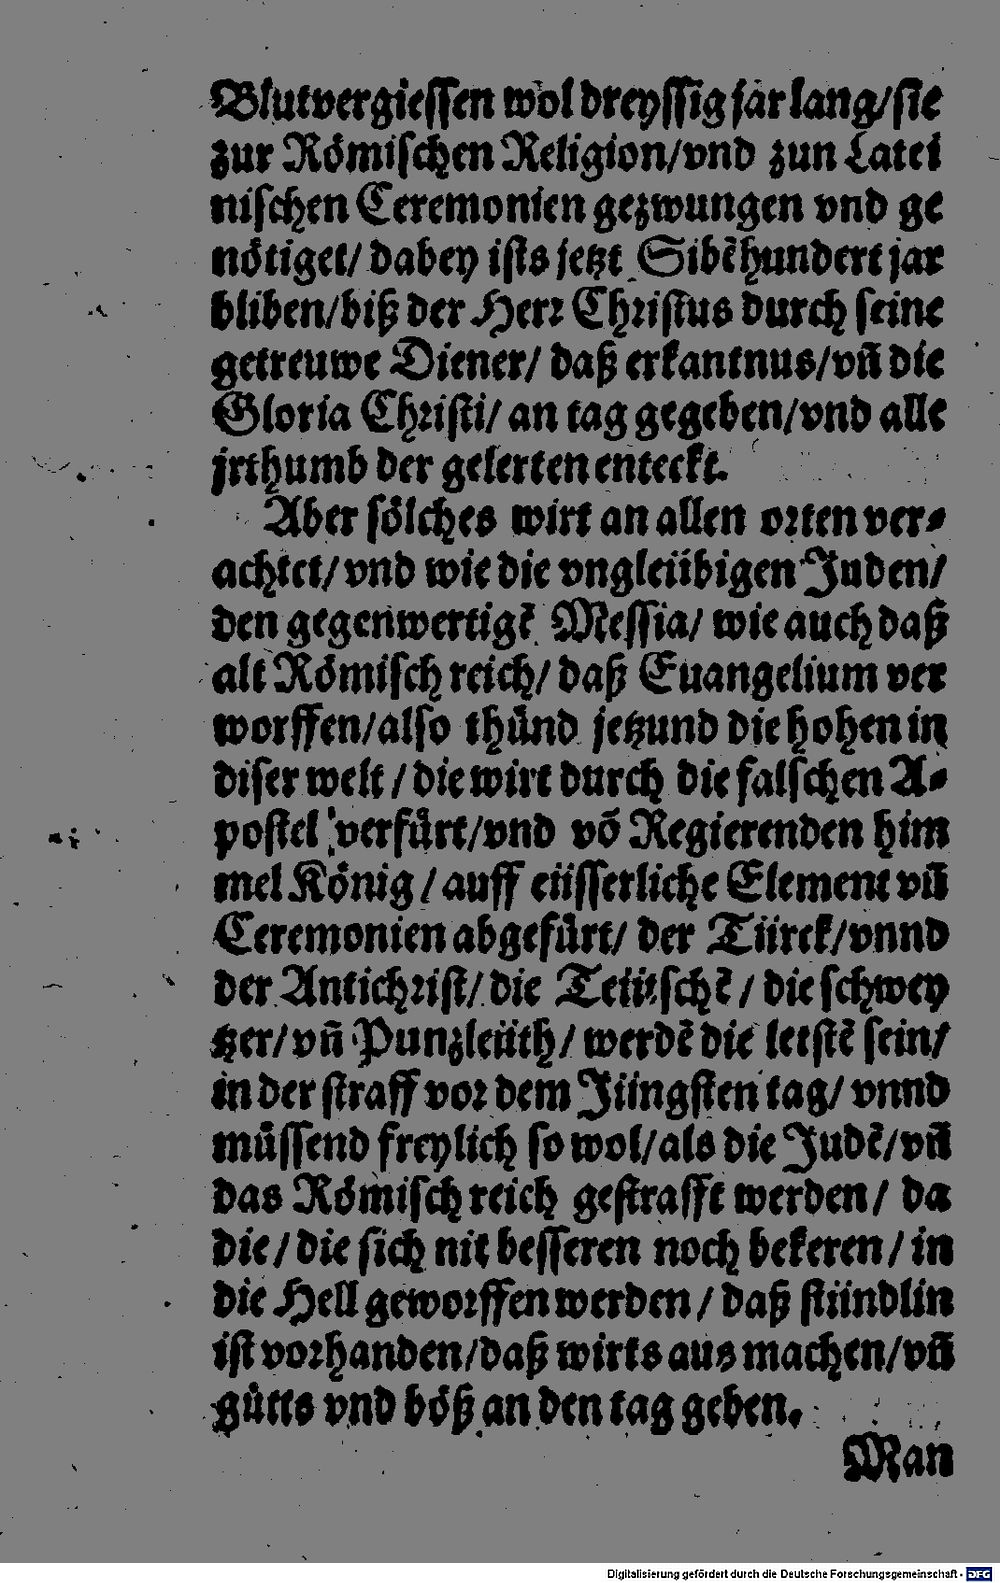 Blutvergiessen wol dreyssig jar lang/sie
zur Römischen Religion/vnd zun Latei
nischen Ceremonien gezwungen vnd ge
nötiget/ dabey ists jetzt Sibẽhundert jar
bliben/biß der Herr Christus durch seine
getreuwe Diener/ daß erkantnus/vñ die
Gloria Christi/ an tag gegeben/vnd alle
jrthumb der gelerten enteckt.
Aber sölches wirt an allen orten ver⸗
achtet/ vnd wie die vngleübigen Juden/
den gegenwertigẽ Messia/ wie auch daß
alt Römisch reich/ daß Euangelium ver
worffen/also thůnd jetzund die hohen in
diser welt / die wirt durch die falschen A⸗
postel verfůrt/vnd võ Regierenden him
mel König / auff eüsserliche Element vñ
Ceremonien abgefůrt/ der Türck/vnnd
der Antichrist/ die Teütschẽ / die schwey
tzer/ vñ Punzleüth/ werdẽ die letstẽ sein/
in der straff vor dem Jüngsten tag/ vnnd
můssend freylich so wol/als die Judẽ/vñ
das Römisch reich gestrafft werden/ da
die / die sich nit besseren noch bekeren / in
die Hell geworffen werden / daß stündlin
ist vorhanden/daß wirts aus machen/vñ
gůtts vnd böß an den tag geben.
Man
Digitalisierung gefördert durch die Deutsche Forschungsgemeinschaft - DFG